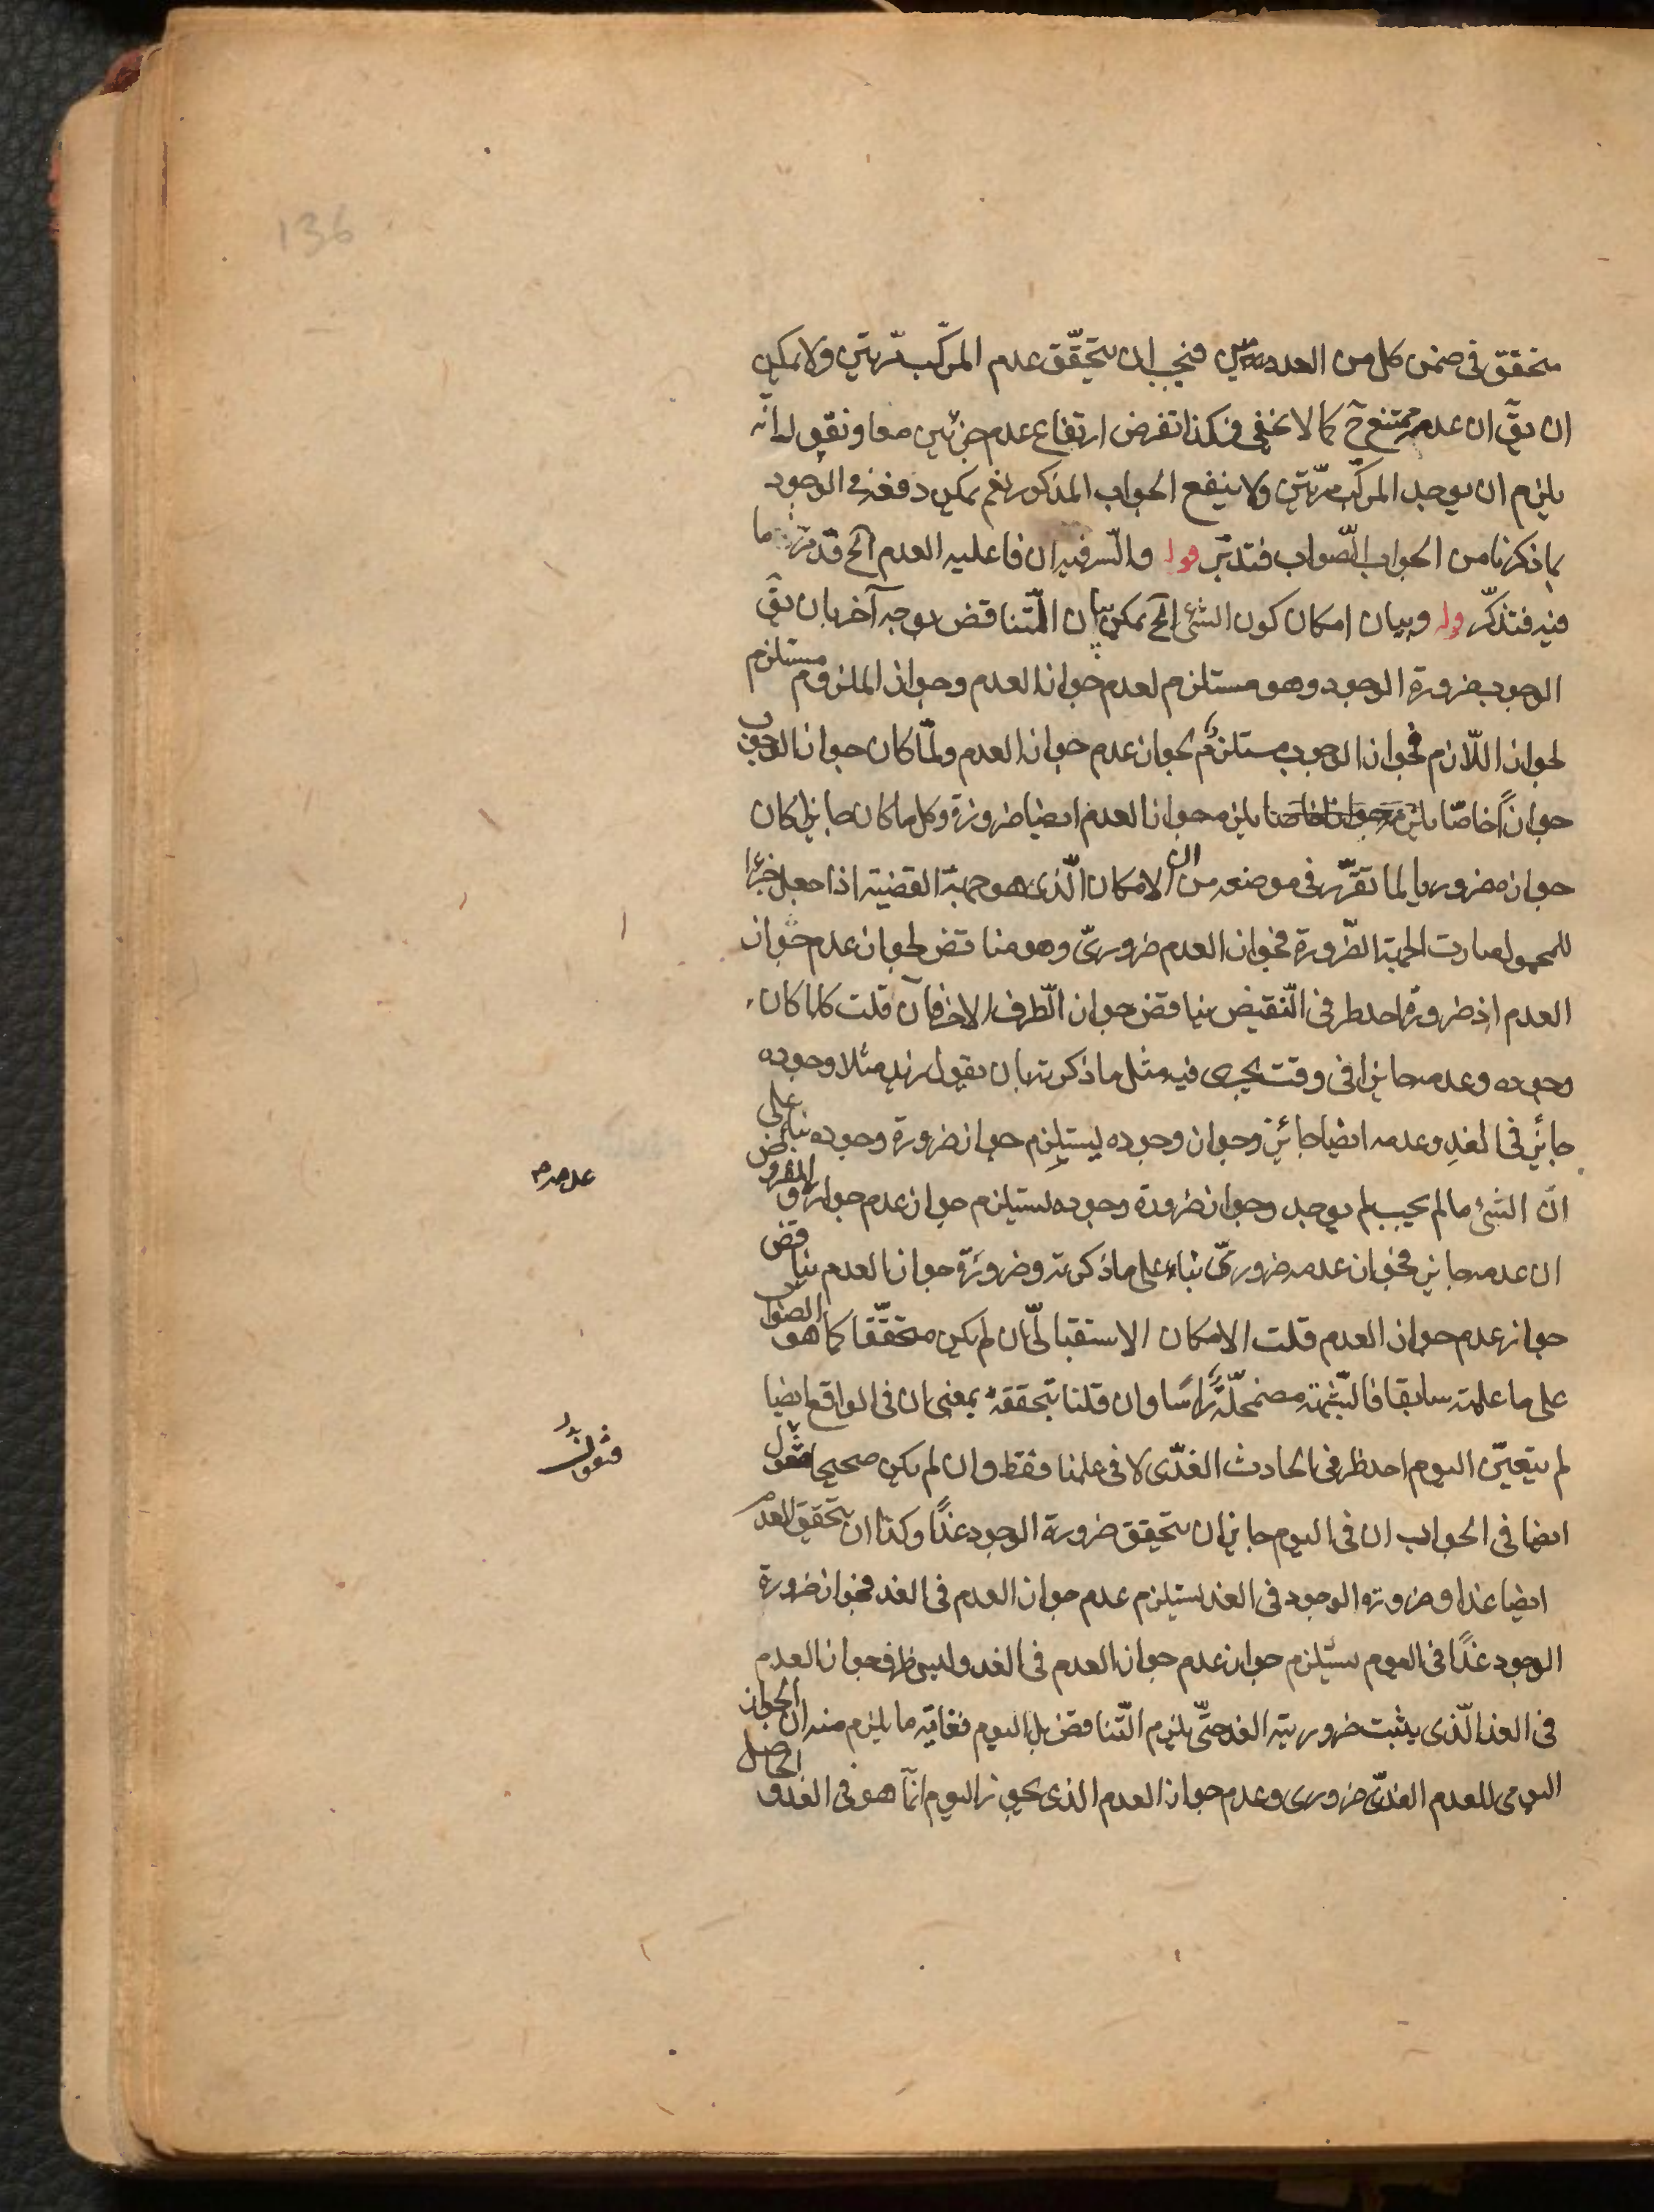 136
متحقق فى ضمن كل من العدمين فيجب ان يتحقّق عدم المركّب مرّتين ولا يمكن
ان يقّ ان عدمه ممتنع ح كما لا يخفى فهكذا تفرض ارتفاع عدم جزئين معا ونقول انّه
يلزم ان يوجد المركّب مرّتين ولا ينفع الجواب المذكور نعم يمكن دفعه فى الوجود
بما ذكرنا من الجواب الصّواب فتدبّر قوله والسّر فيه ان فاعليه العدم الخ قد مرّ ما
فيه فتذكّر قوله وبيان امكان كون الشئ الخ يمكن بيان التّناقض بوجه آخر بان يقّ
الوجوب ضرورة الوجود وهو مستلزم لعدم جواز العدم وجواز الملزوم مستلزم
لجواز اللّازم فجواز الوجوب مستلزم لجواز عدم جواز العدم ولمّا كان جواز الوجوب
جوازاً خاصّا يلزمه جواز العدم ايضا ضرورة وكل ما كان جايزا كان
جوازه ضروريا لما تقرّر فى موضعه من ان الامكان الّذى هو جهة القضيّة اذا جعل جزءا
للمحمول صارت الجهة الضّرورة فجواز العدم ضرورىّ وهو مناقض لجواز عدم جواز
العدم اذ ضرورة احد طرفى النّقيض يناقض جواز الطّرف الاخر فان قلت كلما كان
وجوده وعدمه جايزا فى وقت يجرى فيه مثل ما ذكرته بان يقول زيد مثلا وجوده
جائز فى الغد وعدمه ايضا جائز وجواز وجوده يستلزم جواز ضرورة وجوده بناء على
انّ الشئ ما لم يجب لم يوجد وجواز ضرورة وجوده يستلزم جواز عدم جواز عدمه والمفروض
ان عدمه جايز فجواز عدمه ضرورىّ بناء على ما ذكرته وضرورة جواز العدم يناقض
جواز عدم جواز العدم قلت الامكان الاستقبالىّ ان لم يكن متحقّقا كما هو الصّواب
على ما علمته سابقا فالشّبهة مضمحلّة رأسا وان قلنا بتحققه بمعنى ان فى الواقع ايضا
لم يتعيّن اليوم احد طرفى الحادث الغدّى لا فى علمنا فقط وان لم يكن صحيحا فنقول
ايضا فى الجواب ان فى اليوم جايز ان يتحقق ضرورة الوجود غدًا وكذا ان يتحقق العدم
ايضا غدا وضرورة الوجود فى الغد يستلزم عدم جواز العدم فى الغد فجواز ضرورة
الوجود غدًا فى اليوم يستلزم جواز عدم جواز العدم فى الغد وليس ظرف جواز العدم
فى الغد الّذى يثبت ضروريته الغد حتّى يلزم التّناقض بل اليوم فغاية ما يلزم منه ان الجواز
اليومى للعدم الغدّى ضرورى وعدم جواز العدم الذى يجوز اليوم انّما هو فى الغد والحاصل